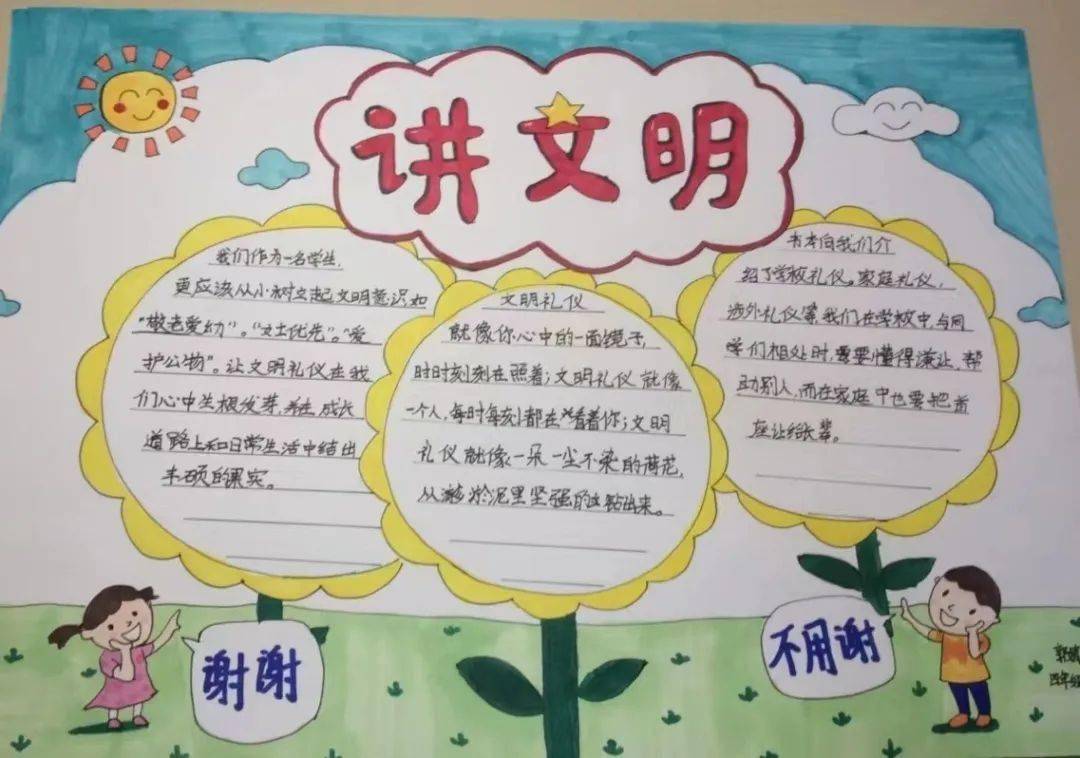 讲文明
我们作为一名学生,
更应该从小树立起文明意识如
"敬老爱幼"。"女士优先"。"爱
护公物"。让文明礼仪在我
们心中生根发芽,并在成长
道路上和日常生活中结出
丰硕的果实。
文明礼仪
就像你心中的一面镜子,
时时刻刻在照着;文明礼仪就像
一个人,每时每刻都在看着你;文明
礼仪就像一朵一尘不染的荷花,
从淤泥里坚强的钻出来。
书本向我们介
绍了学校礼仪。家庭礼仪,
涉外礼仪等,我们在学校中,与同
学们相处时,需要懂得谦让、帮
助别人,而在家庭中也要把首
座让给长辈。
谢谢
不用谢
郭
四年级